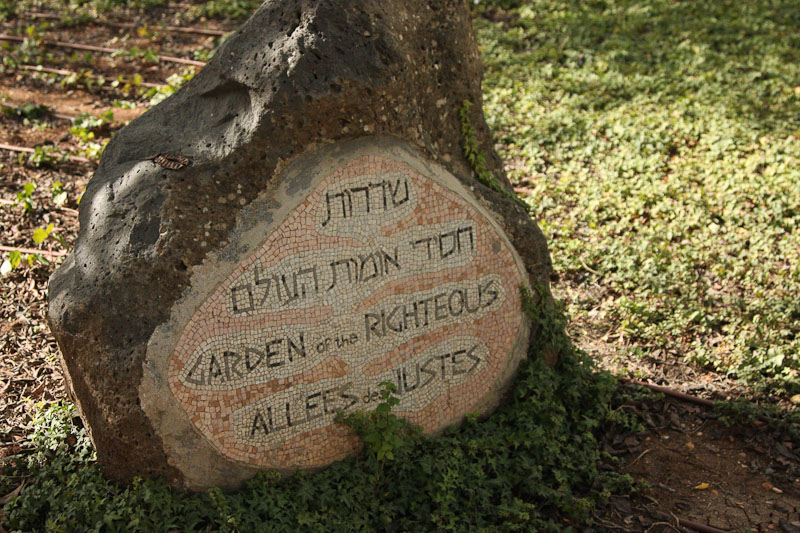 שדרות
חסד אומות העולם
GARDEN of the RIGHTEOUS
ALLEES des JUSTES